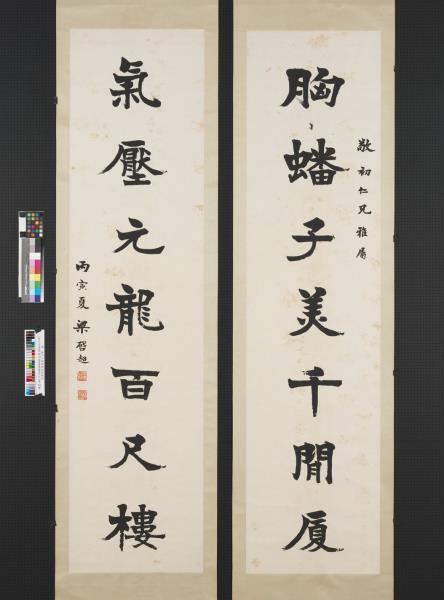 胸蟠子美千間厦
敬初仁兄雅屬
氣壓元龍百尺樓
丙寅夏 梁啓超